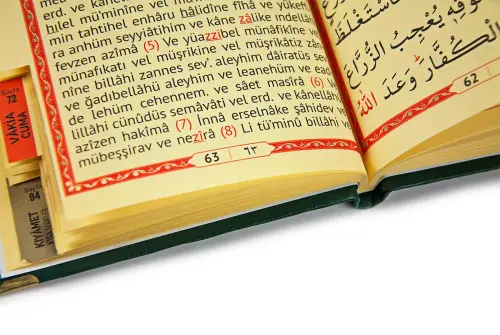 erd. ve kânellâ
bilel mü'minîne vel mü
min tahtihel enhâru hâlidîne fîhâ ve yükeff
ra anhüm seyyiâtihim ve kâne zâlike indellâh
fevzen azîmâ (5) Ve yüazzibel münâfikîne v
münafıkati vel müşrikîne vel müşrikâtiz zânn
nîne billâhi zannes sev'. aleyhim dâiratüs sev
ve ğadıbellâhü aleyhim ve leanehüm ve ead
de lehüm cehennem. ve sâet masîrâ (6) V
lillâhi cünûdüs semâvâti vel erd. ve kânellâhü
azîzen hakîmâ (7) İnnâ erselnâke şâhidev
mübeşşirav ve nezîrâ (8) Li tü'minû billâhi ve
63 ٦٣
فَاسْتَغْلَظَ
سُوقِهِ يُعْجِبُ الزُّرَّاعَ
الْكُفَّارَ وَعَدَ اللّٰهُ
62
Sayfa
72
VÂKIA
CUMA
Sayfa
94
KIYÂMET